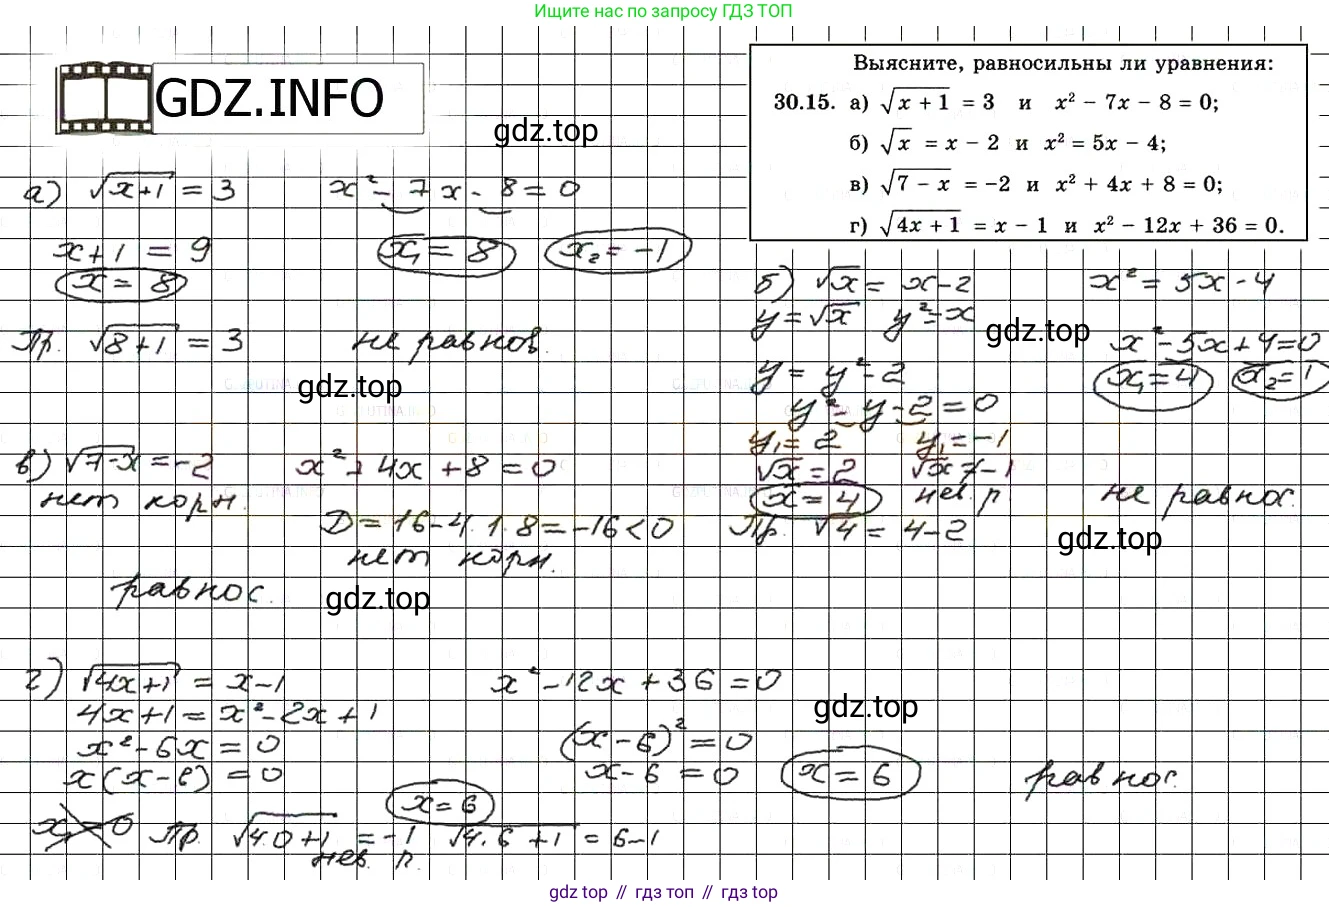 Ищите нас по запросу ГДЗ ТОП
GDZ.INFO
gdz.top
Выясните, равносильны ли уравнения:
30.15. а) √(x + 1) = 3 и x² − 7x − 8 = 0;
б) √x = x − 2 и x² = 5x − 4;
в) √(7 − x) = −2 и x² + 4x + 8 = 0;
г) √(4x + 1) = x − 1 и x² − 12x + 36 = 0.
а) √(x+1) = 3 x² − 7x − 8 = 0
x+1 = 9 x₁ = 8 x₂ = −1
x = 8
Пр. √(8+1) = 3 не равнос.
gdz.top
б) √x = x−2 x² = 5x−4
y = √x y² = x
gdz.top
y = y²−2 x²−5x+4=0
y²−y−2=0 x₁=4 x₂=1
y₁=2 y₁=−1
√x=2 √x≠−1
x=4 нев. р. не равнос.
Пр. √4 = 4−2
gdz.top
в) √(7−x) = −2 x²+4x+8=0
нет корн. D=16−4·1·8=−16<0
нет корн.
равнос.
gdz.top
г) √(4x+1) = x−1 x²−12x+36=0
4x+1=x²−2x+1 (x−6)²=0
gdz.top
x²−6x=0 x−6=0 x=6
x(x−6)=0 равнос.
x=6
x₁=0 Пр. √(4·0+1) = −1 √(4·6+1) = 6−1
нев. р.
gdz top // гдз топ // гдз top